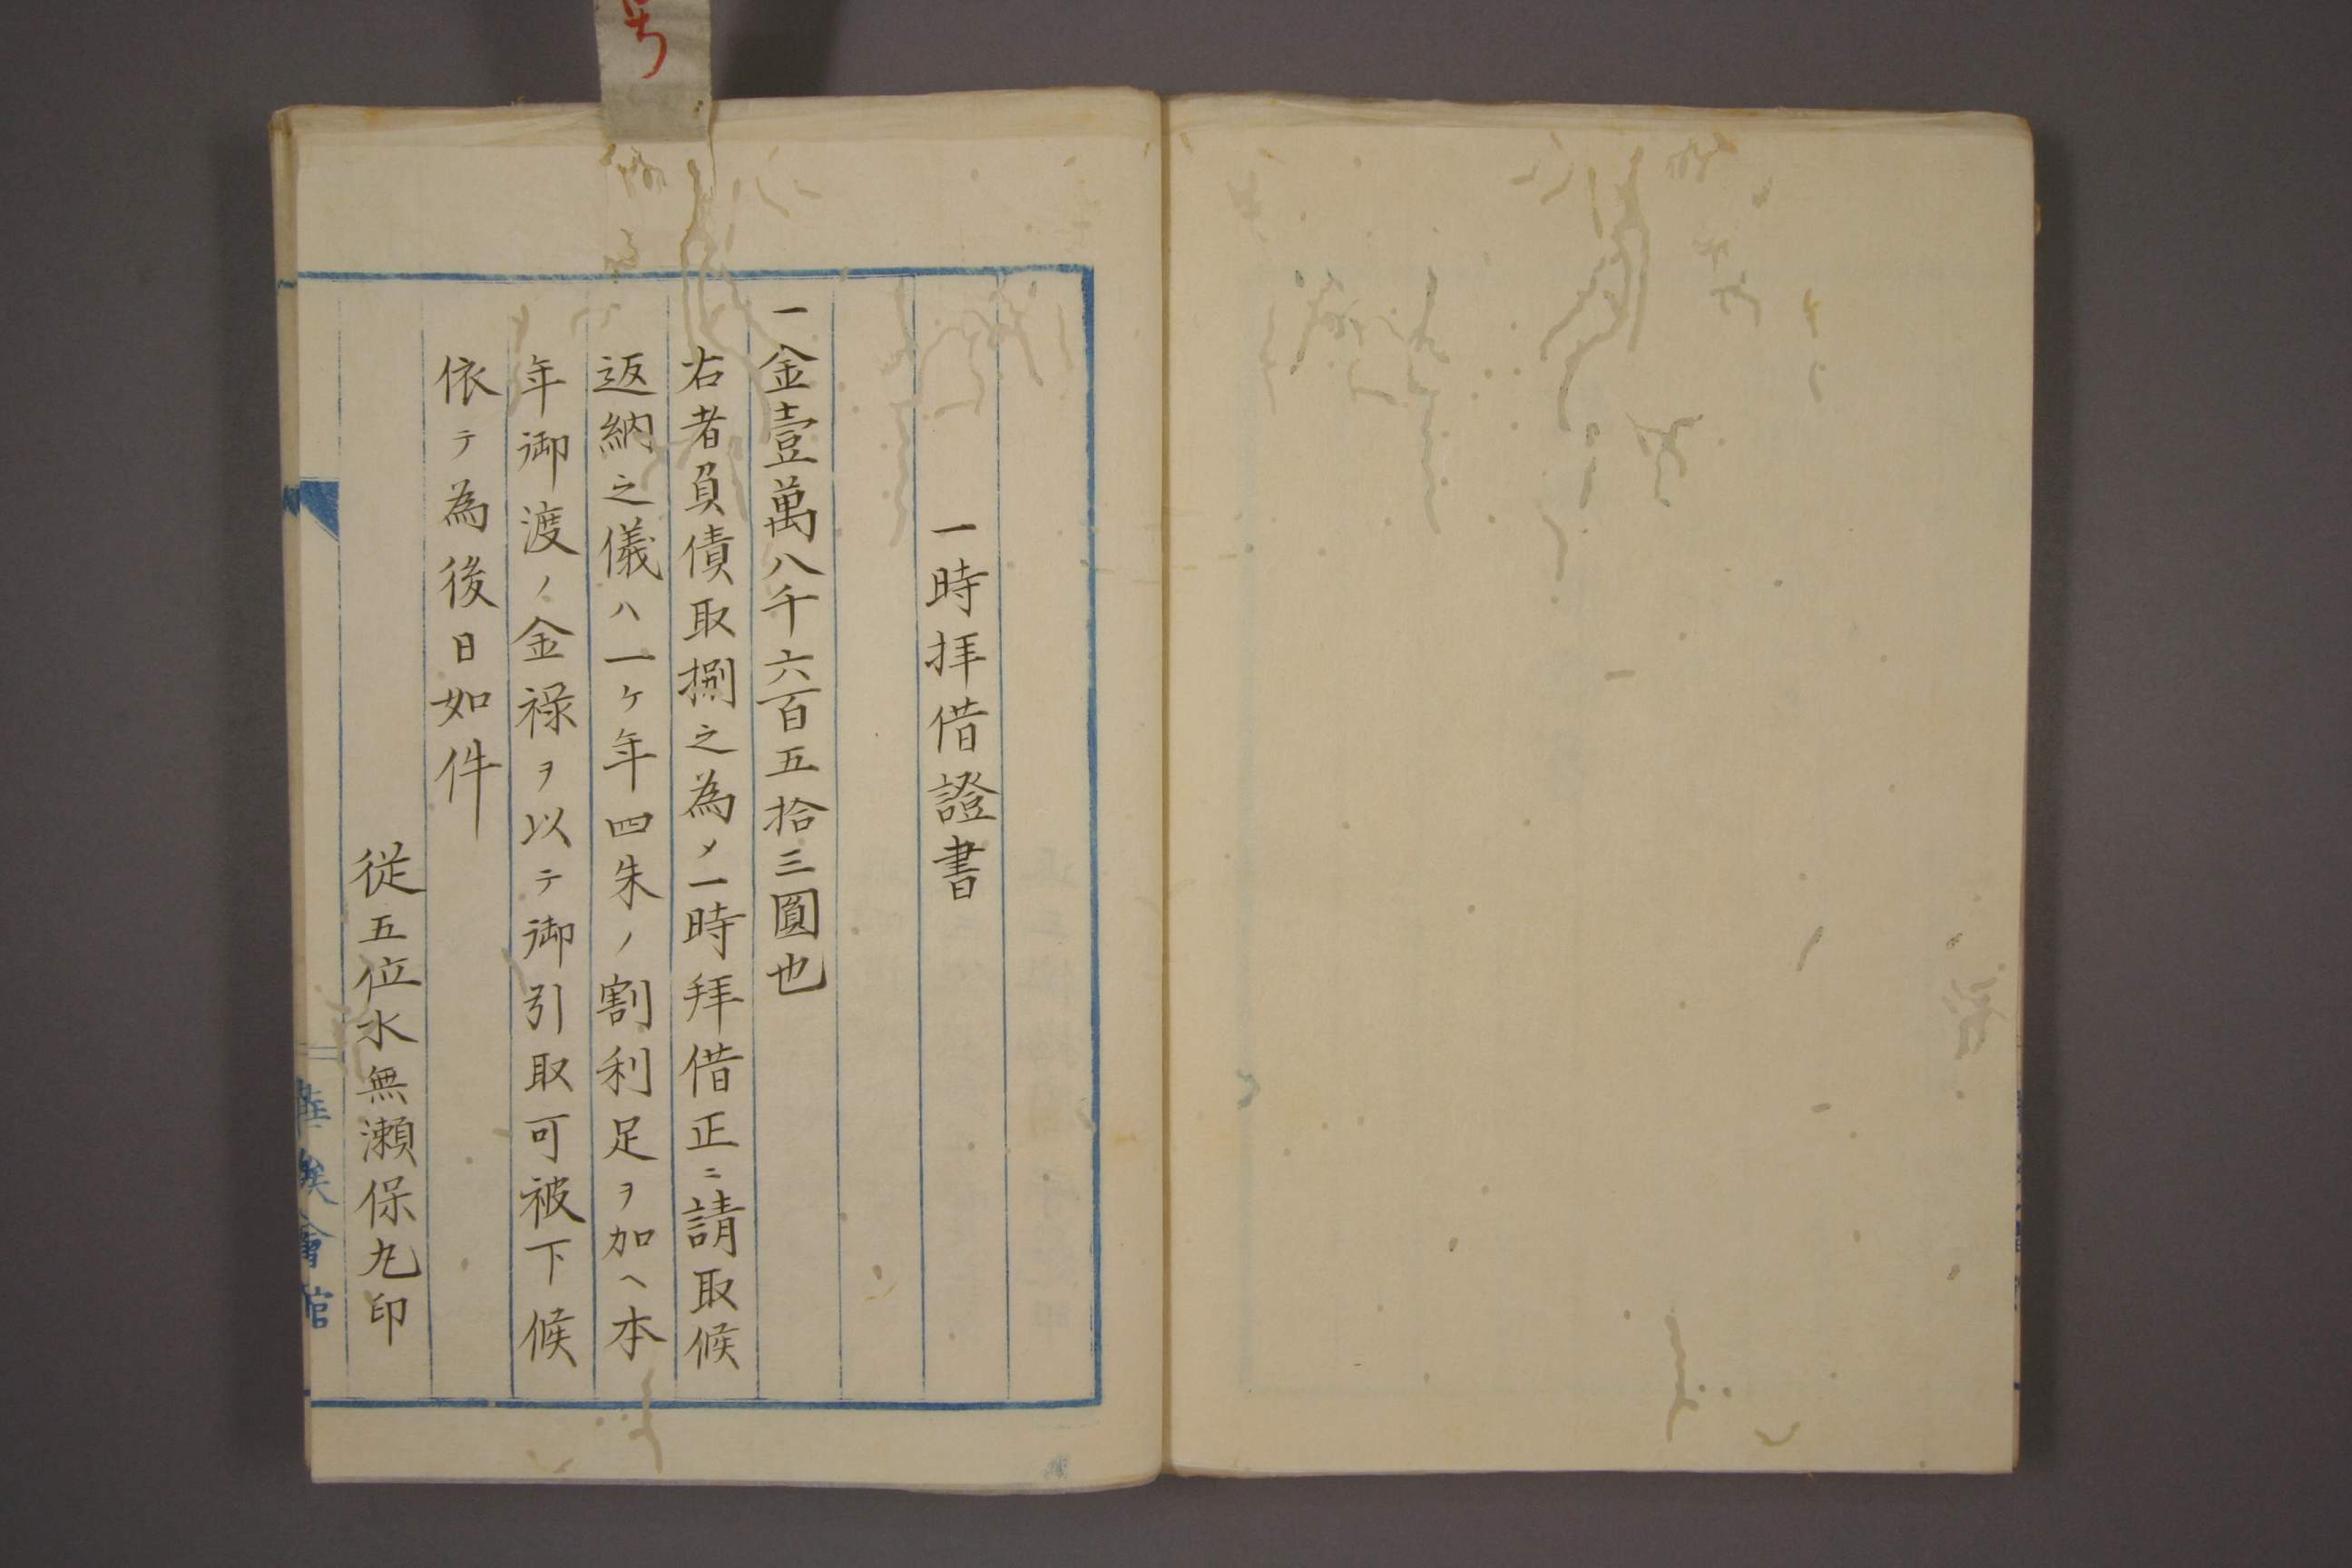 一時拝借證書
一金壹萬八千六百五拾三圓也
右者負債取捌之為メ一時拜借正ニ請取候
返納之儀ハ一ケ年四朱ノ割利足ヲ加ヘ本
年御渡ノ金禄ヲ以テ御引取可被下候
依テ為後日如件
従五位水無瀬保丸印
華族會館